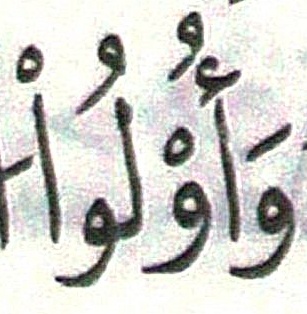 وَأُوْلُواْ